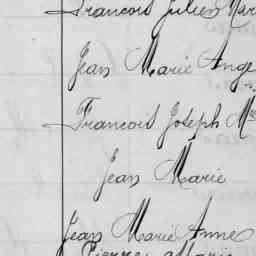 Francois Julien Mar
Jean Marie Ange
Francois Joseph M
Jean Marie
Jean Marie Anne
Pierre Marie